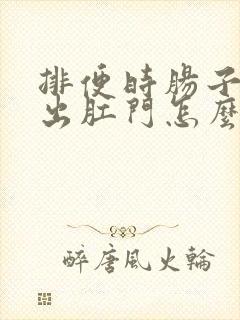 排便時腸子
出肛門怎麼
醉唐風火輪